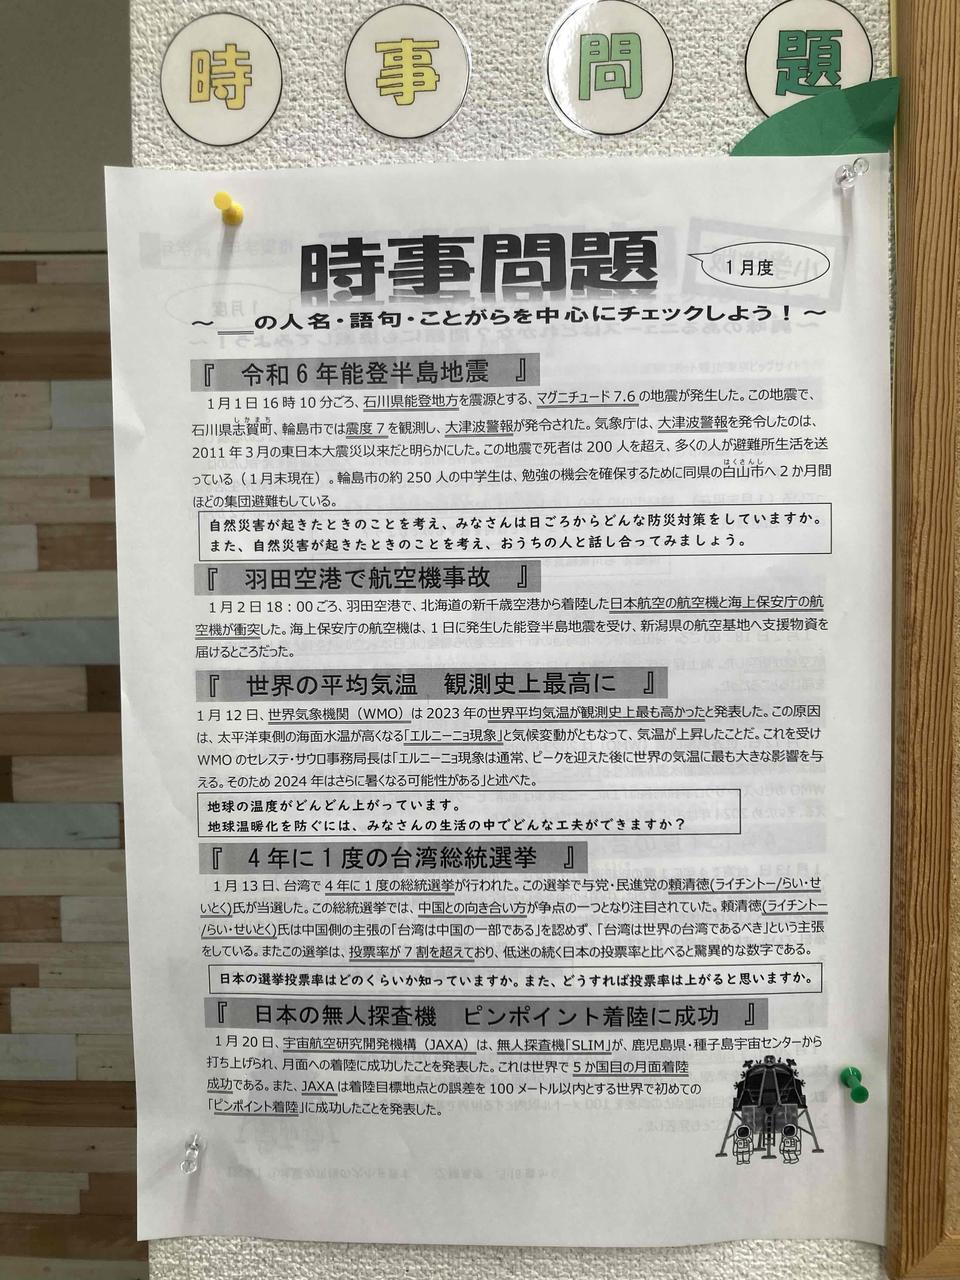 時事問題
時事問題
1月度
~＿＿の人名・語句・ことがらを中心にチェックしよう！~
『 令和6年能登半島地震 』
1月1日16時10分ごろ、石川県能登地方を震源とする、マグニチュード7.6の地震が発生した。この地震で、
石川県志賀町、輪島市では震度7を観測し、大津波警報が発令された。気象庁は、大津波警報を発令したのは、
しかまち
2011年3月の東日本大震災以来だと明らかにした。この地震で死者は200人を超え、多くの人が避難所生活を送
っている（1月末現在）。輪島市の約250人の中学生は、勉強の機会を確保するために同県の白山市へ2か月間
はくさんし
ほどの集団避難もしている。
自然災害が起きたときのことを考え、みなさんは日ごろからどんな防災対策をしていますか。
また、自然災害が起きたときのことを考え、おうちの人と話し合ってみましょう。
『 羽田空港で航空機事故 』
1月2日18：00ごろ、羽田空港で、北海道の新千歳空港から着陸した日本航空の航空機と海上保安庁の航
空機が衝突した。海上保安庁の航空機は、1日に発生した能登半島地震を受け、新潟県の航空基地へ支援物資を
届けるところだった。
『 世界の平均気温 観測史上最高に 』
1月12日、世界気象機関（WMO）は2023年の世界平均気温が観測史上最も高かったと発表した。この原因
は、太平洋東側の海面水温が高くなる「エルニーニョ現象」と気候変動がともなって、気温が上昇したことだ。これを受け
WMOのセレステ・サウロ事務局長は「エルニーニョ現象は通常、ピークを迎えた後に世界の気温に最も大きな影響を与
える。そのため2024年はさらに暑くなる可能性がある」と述べた。
地球の温度がどんどん上がっています。
地球温暖化を防ぐには、みなさんの生活の中でどんな工夫ができますか？
『 4年に1度の台湾総統選挙 』
1月13日、台湾で4年に1度の総統選挙が行われた。この選挙で与党・民進党の頼清徳(ライチントー/らい・せ
いとく)氏が当選した。この総統選挙では、中国との向き合い方が争点の一つとなり注目されていた。頼清徳(ライチントー
/らい・せいとく)氏は中国側の主張の「台湾は中国の一部である」を認めず、「台湾は世界の台湾であるべき」という主張
をしている。またこの選挙は、投票率が7割を超えており、低迷の続く日本の投票率と比べると驚異的な数字である。
日本の選挙投票率はどのくらいか知っていますか。また、どうすれば投票率は上がると思いますか。
『 日本の無人探査機 ピンポイント着陸に成功 』
1月20日、宇宙航空研究開発機構（JAXA）は、無人探査機「SLIM」が、鹿児島県・種子島宇宙センターから
打ち上げられ、月面への着陸に成功したことを発表した。これは世界で5か国目の月面着陸
成功である。また、JAXAは着陸目標地点との誤差を100メートル以内とする世界で初めての
「ピンポイント着陸」に成功したことを発表した。